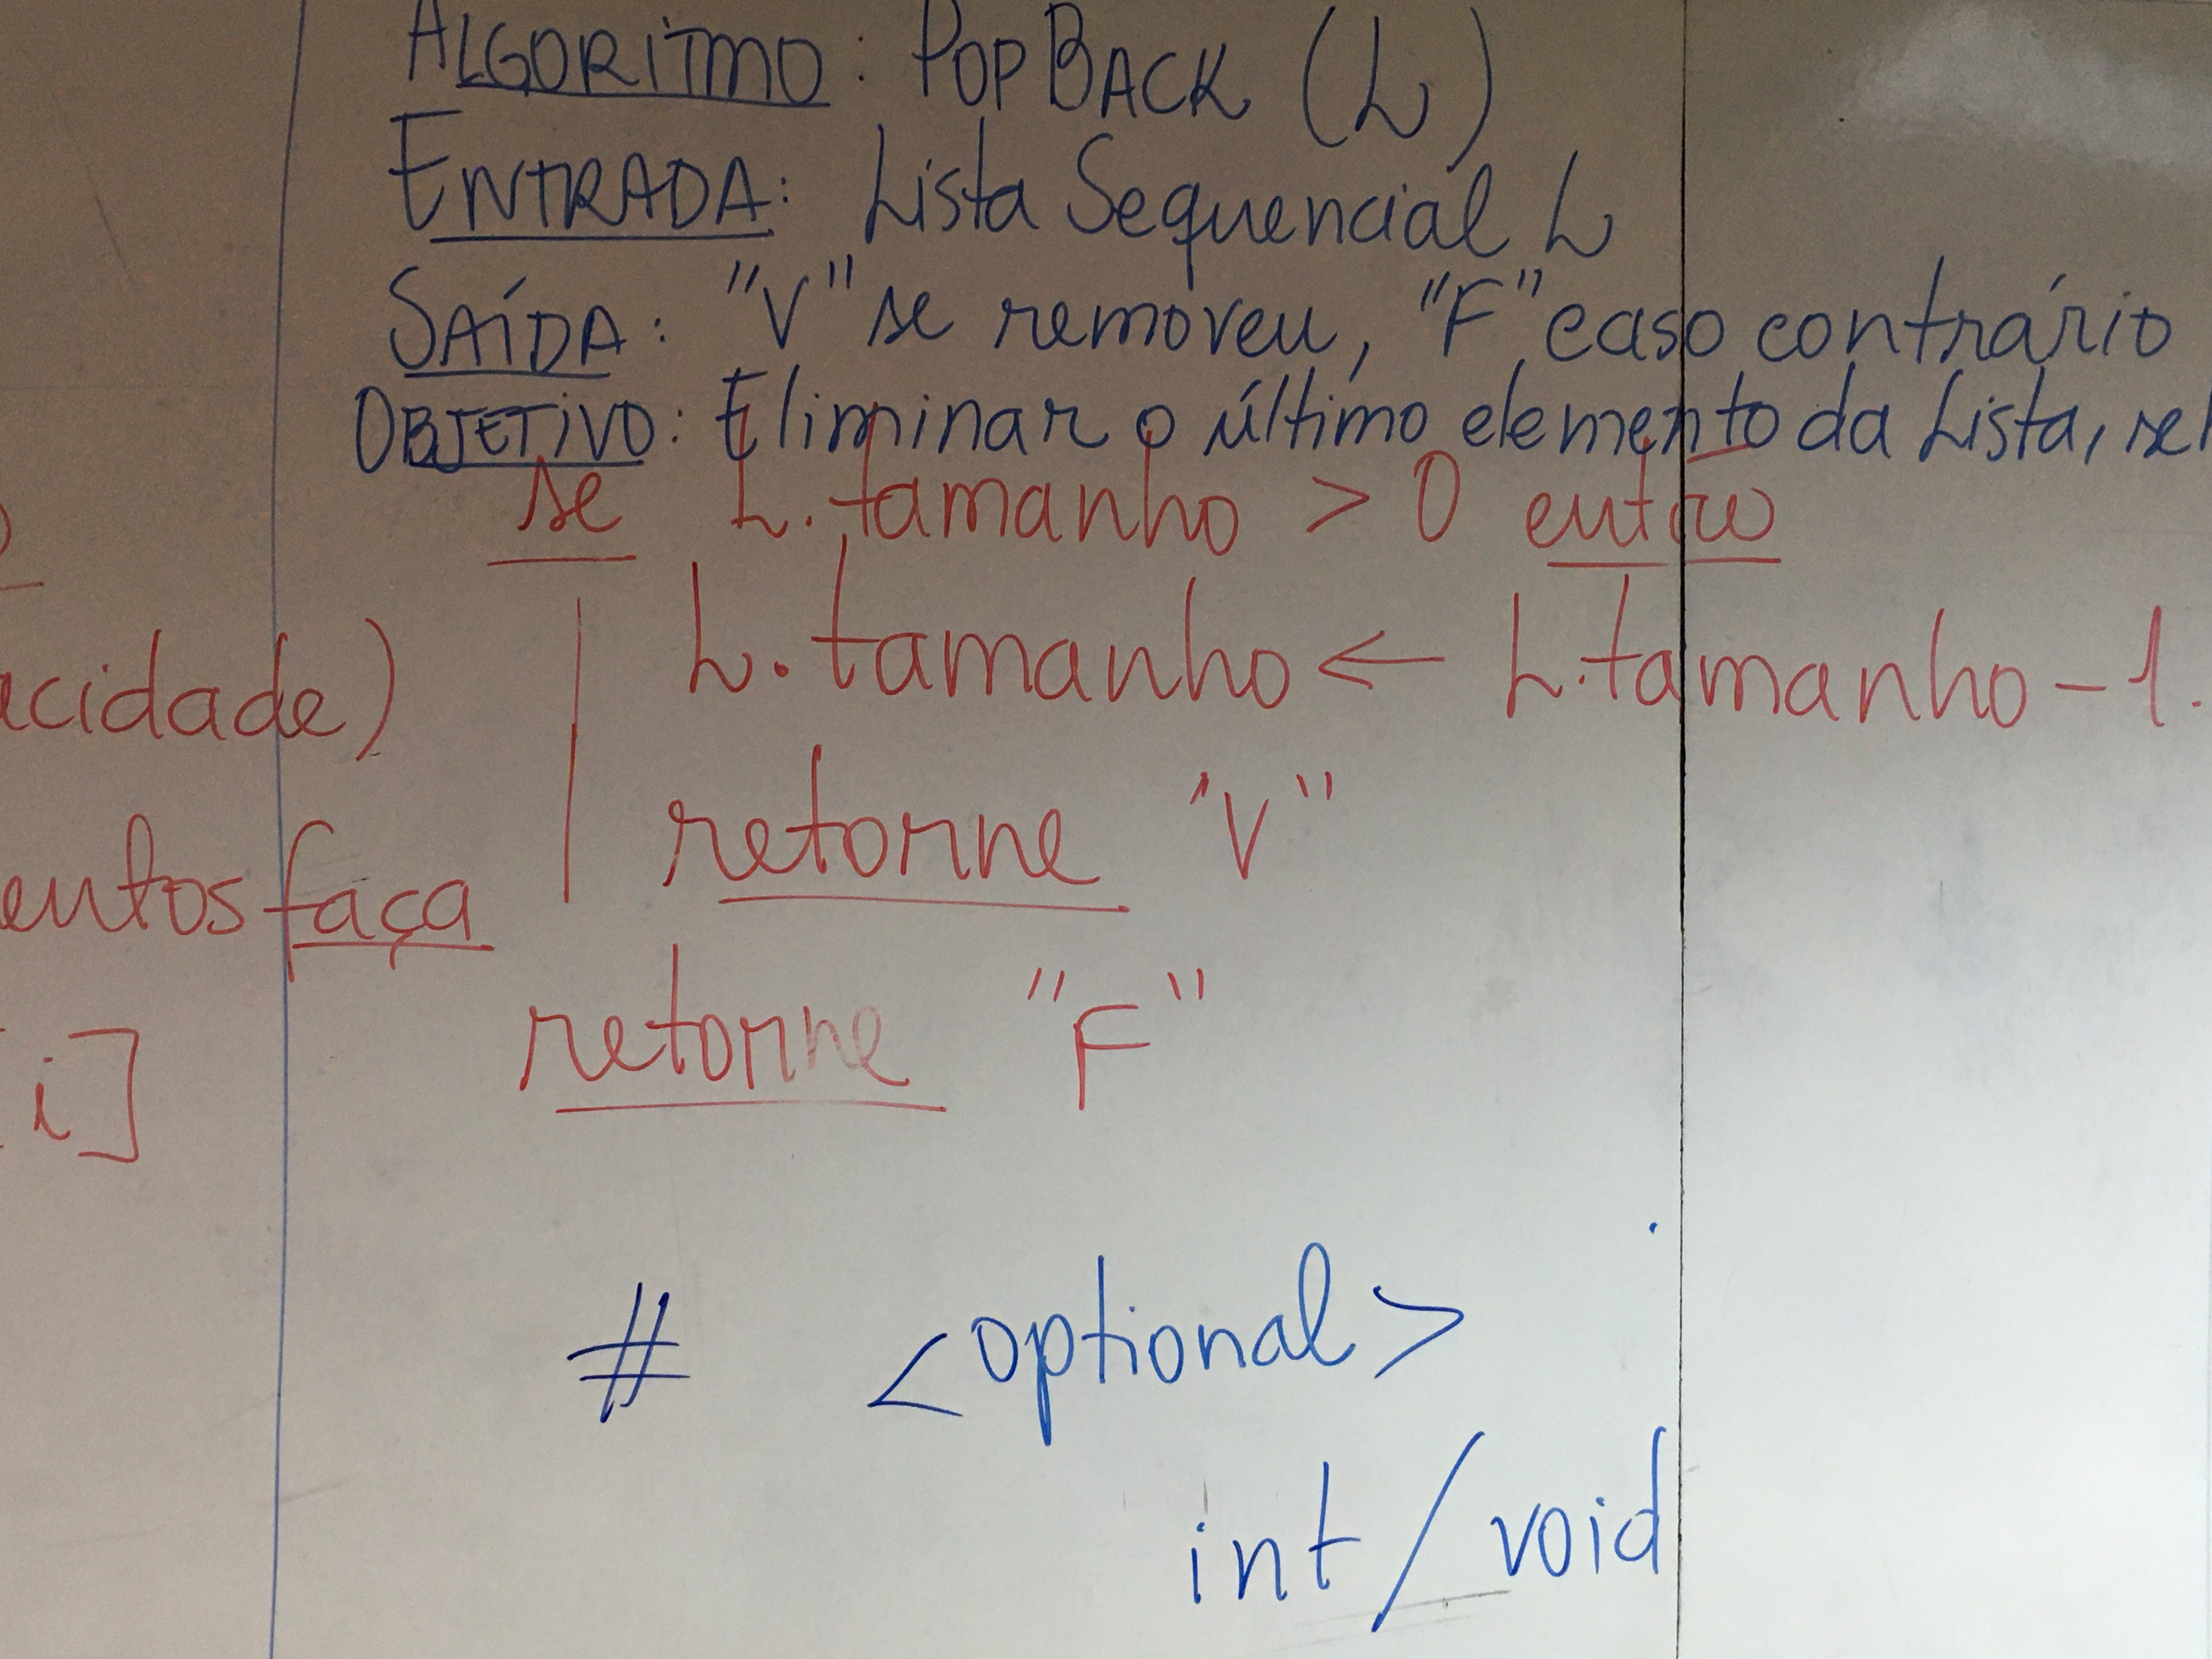 ALGORITMO: POPBACK (L)
ENTRADA: Lista Sequencial L
SAÍDA: "V" se removeu, "F" caso contrário
OBJETIVO: Eliminar o último elemento da Lista, se
se L.tamanho > 0 então
L.tamanho ← L.tamanho - 1.
acidade)
retorne "V"
entos faça
retorne "F"
i]
# <optional>
int/void